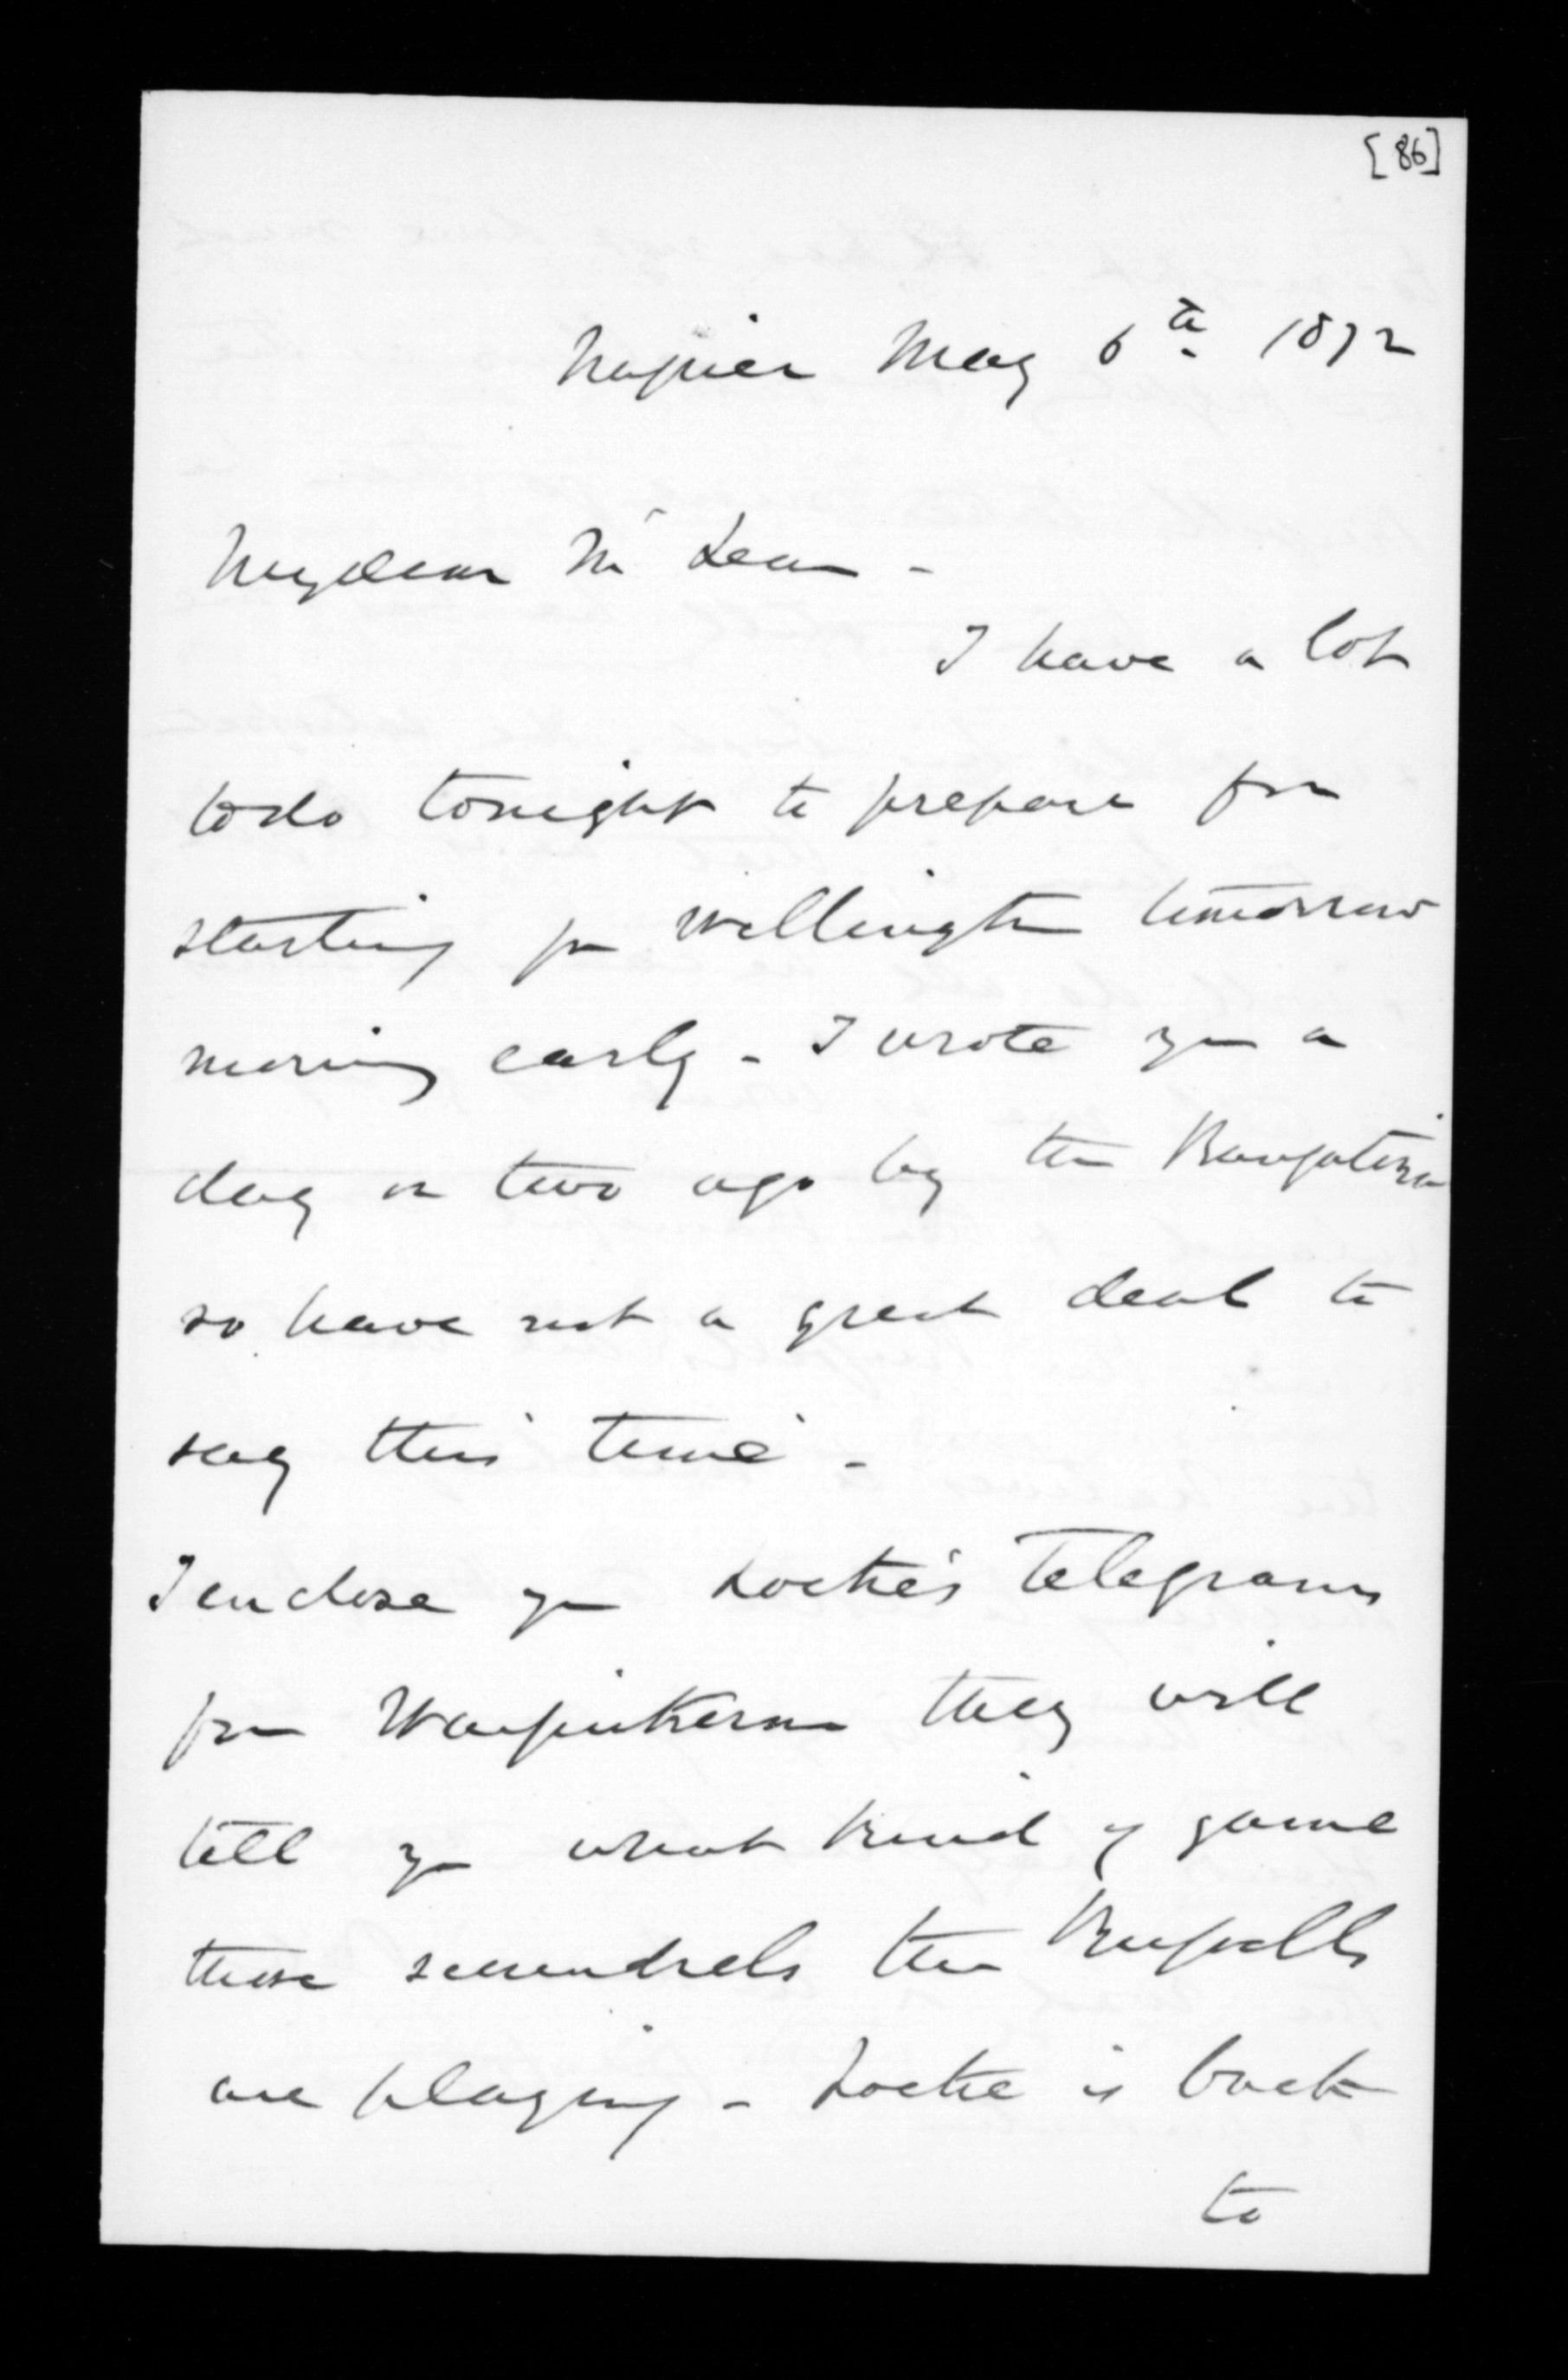 [86]
Napier May 6th 1872
My dear McLean -
I have a lot
to do tonight to prepare for
starting for Wellington tomorrow
morning early - I wrote you a
day or two ago by the Rangatira
so have not a great deal to
say this time -
I enclose you Locke's Telegrams
from Waipukurau they will
tell you what kind of game
those scoundrels the Russells
are playing - Locke is back
to